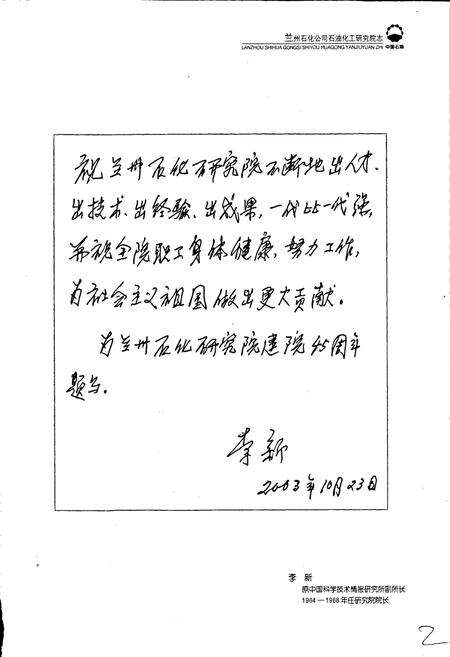 兰州石化公司石油化工研究院志
LANZHOU SHIHUA GONGSI SHIYOU HUAGONG YANJIUYUAN ZHI
中国石油
祝兰州石化研究院不断地出人才、
出技术、出经验、出成果，一代比一代强，
并祝全院职工身体健康，努力工作，
为社会主义祖国做出更大贡献。
为兰州石化研究院建院45周年
题写。
李新
2003年10月23日
李 新
原中国科学技术情报研究所副所长
1964—1968年任研究院院长
2